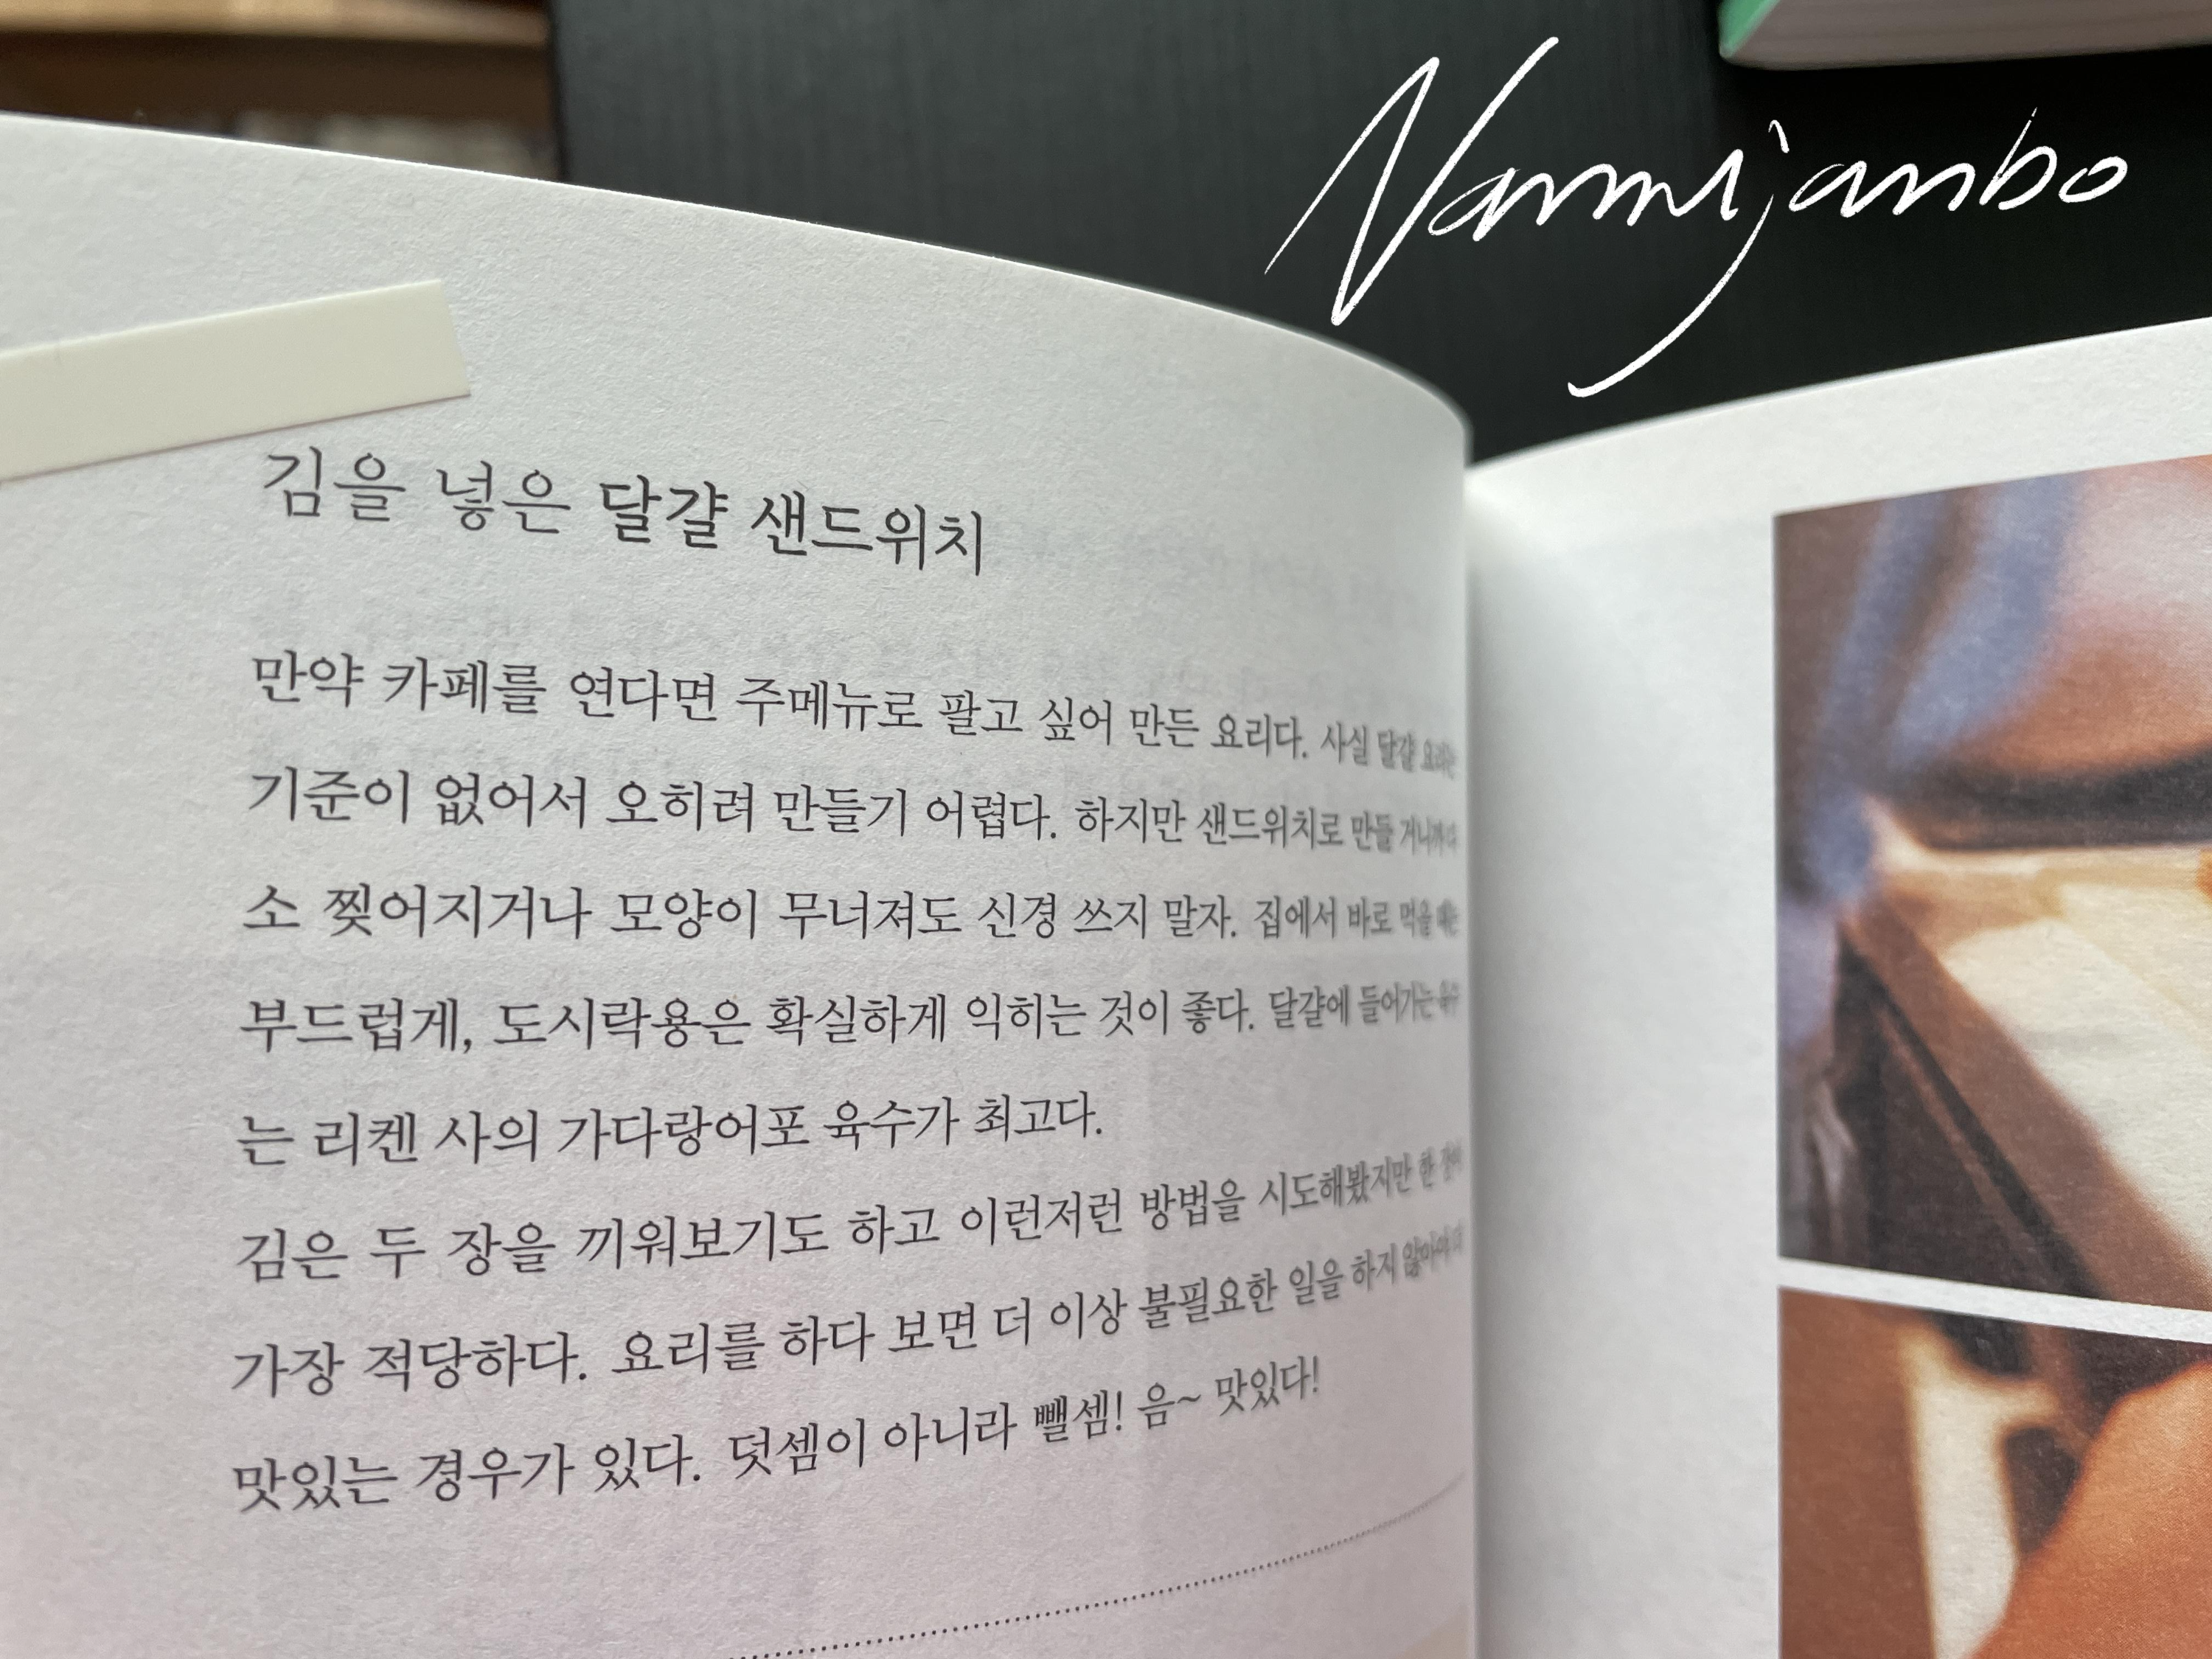 Nammijanbo
김을 넣은 달걀 샌드위치
만약 카페를 연다면 주메뉴로 팔고 싶어 만든 요리다. 사실 달걀 요리는
기준이 없어서 오히려 만들기 어렵다. 하지만 샌드위치로 만들 거니까 다
소 찢어지거나 모양이 무너져도 신경 쓰지 말자. 집에서 바로 먹을 때는
부드럽게, 도시락용은 확실하게 익히는 것이 좋다. 달걀에 들어가는 육수
는 리켄 사의 가다랑어포 육수가 최고다.
김은 두 장을 끼워보기도 하고 이런저런 방법을 시도해봤지만 한 장이
가장 적당하다. 요리를 하다 보면 더 이상 불필요한 일을 하지 않아야
맛있는 경우가 있다. 덧셈이 아니라 뺄셈! 음~ 맛있다!